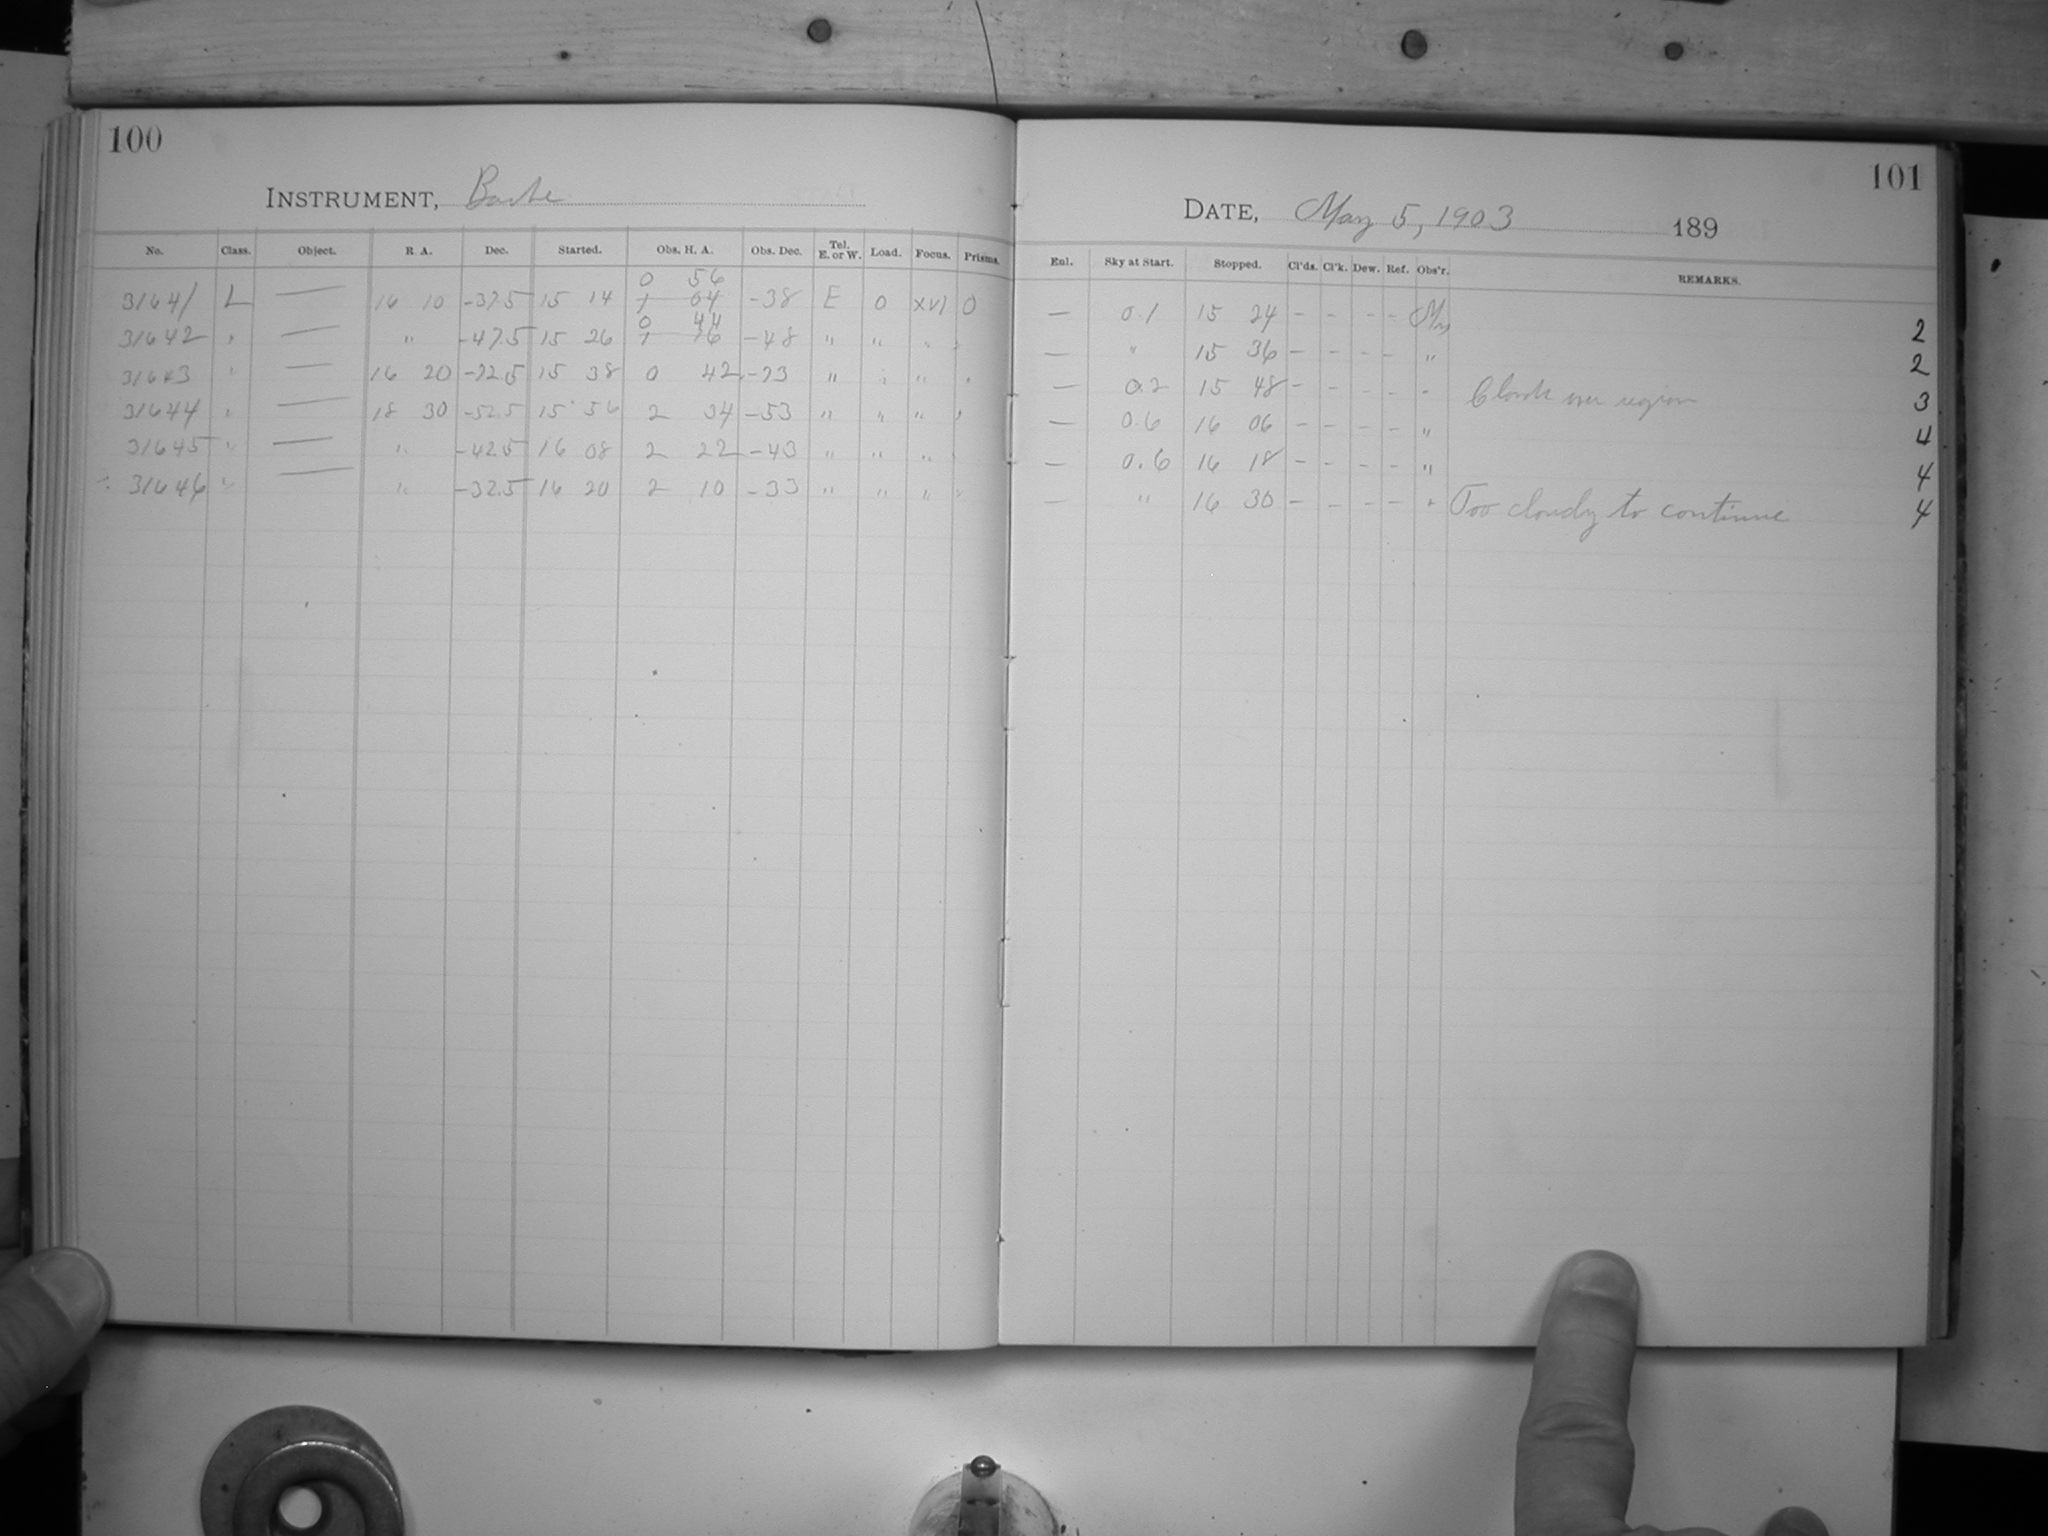 100
INSTRUMENT, Bache
No. Class. Object. R. A. Dec. Started. Obs. H. A. Obs. Dec. Tel. E. or W. Load. Focus. Prisms.
0 56
31641 L — 16 10 -37.5 15 14 1 04 -38 E 0 XVI 0
0 44
31642 " — " -47.5 15 26 1 16 -48 " " " "
31643 " — 16 20 -72.5 15 38 0 42 -73 " " " "
31644 " — 18 30 -52.5 15 56 2 34 -53 " " " "
31645 " — " -42.5 16 08 2 22 -43 " " "
31646 " — " -32.5 16 20 2 10 -33 " " " "
101
DATE, May 5, 1903 189
Enl. Sky at Start. Stopped. Cl'ds. Cl'k. Dew. Ref. Obs'r. REMARKS.
— 0.1 15 24 - - - - 2
— " 15 36 - - - - " 2
— 0.2 15 48 - - - - " Clouds over region 3
— 0.6 16 06 - - - - " 4
— 0.6 16 18 - - - - " 4
— " 16 30 - - - - " Too cloudy to continue 4